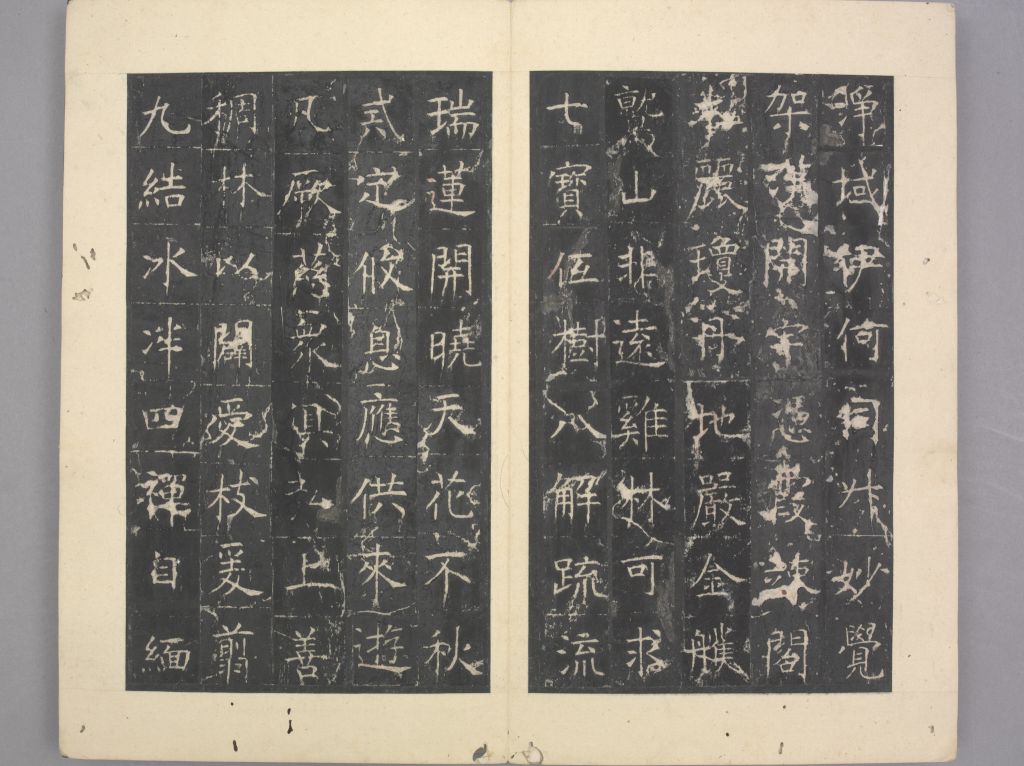 淨域伊何同升妙覺
架漢開宇憑霞竦閣
麗瓊丹地嚴金艧
鷲山非遠雞林可求
七寶伍樹八解疏流
瑞蓮開曉天花不秋
貳定攸息應供來遊
凡厥萌衆俱弘上善
稠林以闢愛枝爰翦
九結冰泮四禪自緬